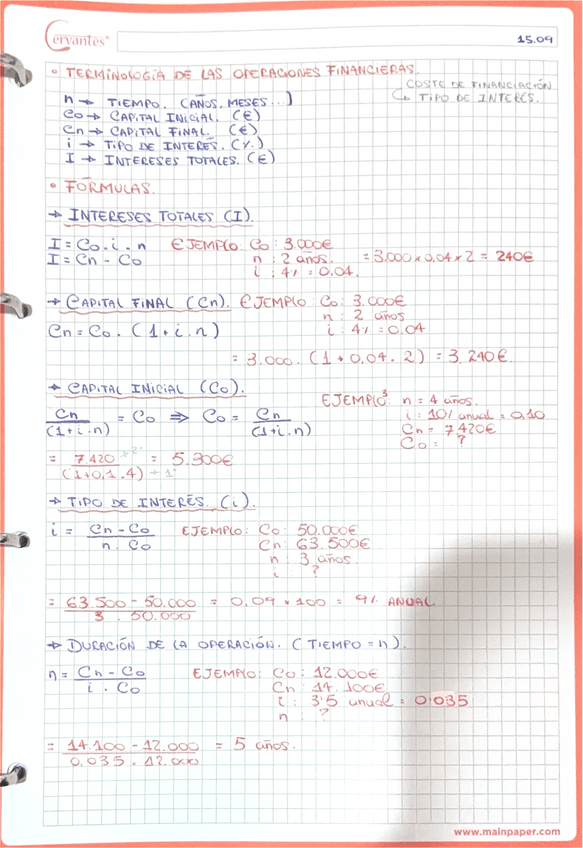 Cervantes®
15.09
• TERMINOLOGÍA DE LAS OPERACIONES FINANCIERAS.
COSTE DE FINANCIACIÓN
↳ TIPO DE INTERÉS.
n → TIEMPO. (AÑOS, MESES...)
Co → CAPITAL INICIAL. (€)
Cn → CAPITAL FINAL. (€)
i → TIPO DE INTERÉS. (%)
I → INTERESES TOTALES. (€)
• FÓRMULAS.
→ INTERESES TOTALES (I).
I = Co . i . n EJEMPLO: Co: 3.000€
I = Cn - Co n: 2 años. = 3.000 x 0,04 x 2 = 240€
i: 4% = 0.04.
→ CAPITAL FINAL (Cn). EJEMPLO: Co: 3.000€
n: 2 años
Cn = Co . (1 + i . n) i: 4% = 0.04
= 3.000 . (1 + 0.04 . 2) = 3.240€.
→ CAPITAL INICIAL (Co). EJEMPLO³ n = 4 años.
Cn / (1+i.n) = Co ⇒ Co = Cn / (1+i.n) i: 10% anual = 0,10
Cn = 7.420€
Co = ?
= 7.420 / (1+0,1 . 4) = 5.300€
→ TIPO DE INTERÉS. (i).
i = Cn - Co / n . Co EJEMPLO: Co: 50.000€
Cn: 63.500€
n: 3 años.
i: ?
= 63.500 - 50.000 / 3 . 50.000 = 0,09 x 100 = 9% ANUAL
→ DURACIÓN DE LA OPERACIÓN. (TIEMPO = n).
n = Cn - Co / i . Co EJEMPLO: Co: 12.000€
Cn: 14.100€
i: 3'5 anual = 0'035
n: ?
= 14.100 - 12.000 / 0,035 . 12.000 = 5 años.
www.mainpaper.com